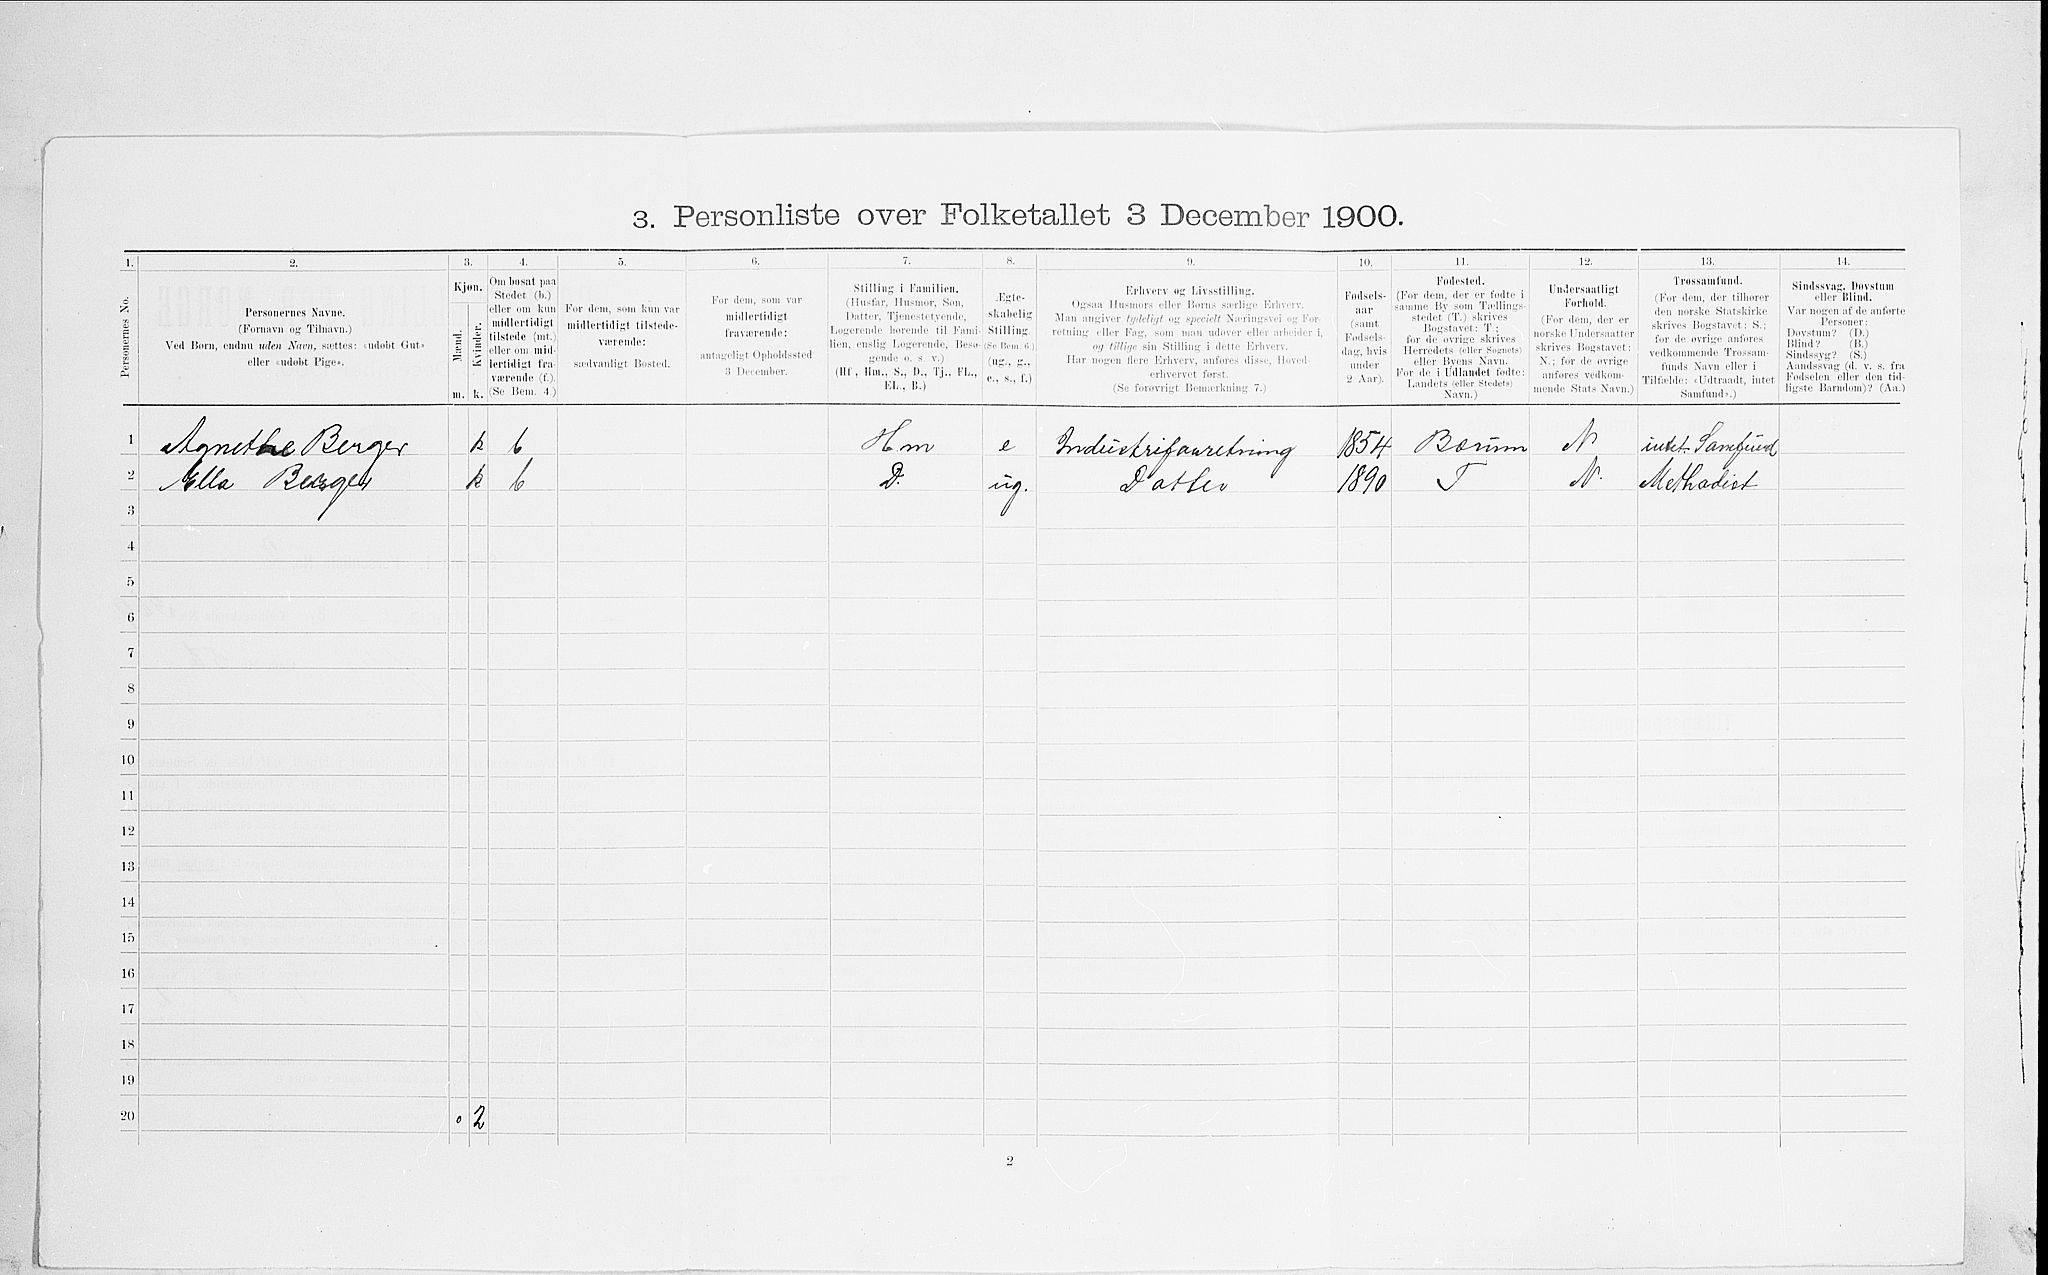 3. Personliste over Folketallet 3 December 1900.
1. 2. 3. 4. 5. 6. 7. 8. 9. 10. 11. 12. 13. 14.
Personernes No.
Personernes Navne.
(Fornavn og Tilnavn.)
Ved Børn, endnu uden Navn, sættes: «udøbt Gut»
eller «udøbt Pige».
Kjøn.
Mænd.
Kvinder.
m. k.
Om bosat paa
Stedet (b.)
eller om kun
midlertidigt
tilstede (mt.)
eller om mid-
lertidigt fra-
værende (f.).
(Se Bem. 4)
For dem, som kun var
midlertidigt tilstede-
værende:
sædvanligt Bosted.
For dem, som var
midlertidigt
fraværende:
antageligt Opholdssted
3 December.
Stilling i Familien.
(Husfar, Husmor, Søn,
Datter, Tjenestetyende,
Logerende hørende til Fami-
lien, enslig Logerende, Besø-
gende o. s. v.)
(Hf., Hm., S., D., Tj., FL.,
EL., B.)
Ægte-
skabelig
Stilling.
(Se Bem. 6.)
(ug., g.,
e., s., f.)
Erhverv og Livsstilling.
Ogsaa Husmors eller Børns særlige Erhverv.
Man angiver tydeligt og specielt Næringsvei og For-
retning eller Fag, som man udøver eller arbeider i,
og tillige sin Stilling i dette Erhverv.
Har nogen flere Erhverv, anføres disse, Hoved-
erhvervet først.
(Se forøvrigt Bemærkning 7.)
Fødsels-
aar
(samt
Fødsels-
dag, hvis
under
2 Aar).
Fødested.
(For dem, der er fødte i
samme By som Tællings-
stedet (T.) skrives
Bogstavet: T.;
for de øvrige skrives
Herredets (eller Sognets)
eller Byens Navn.
For de i Udlandet fødte:
Landets (eller Stedets)
Navn.)
Undersaatligt
Forhold.
(For dem, der er
norske Undersaatter
skrives Bogstavet:
N.; for de øvrige
anføres vedkom-
mende Stats Navn.)
Trossamfund.
(For dem, der tilhører
den norske Statskirke
skrives Bogstavet: S.;
for de øvrige anføres
vedkommende Trossam-
funds Navn eller i
Tilfælde: «Udtraadt, intet
Samfund».)
Sindssvag, Døvstum
eller Blind.
Var nogen af de anførte
Personer:
Døvstum? (D.)
Blind? (B.)
Sindssyg? (S.)
Aandssvag (d. v. s. fra
Fødselen eller den tid-
ligste Barndom)? (Aa.)
1 Agnethe Berger k b Hm e Industriforretning 1854 Bærum N intet Samfund
2 Ella Berger k b D. ug. Datter 1890 T N. Methodist
3
4
5
6
7
8
9
10
11
12
13
14
15
16
17
18
19
20 0 2
2